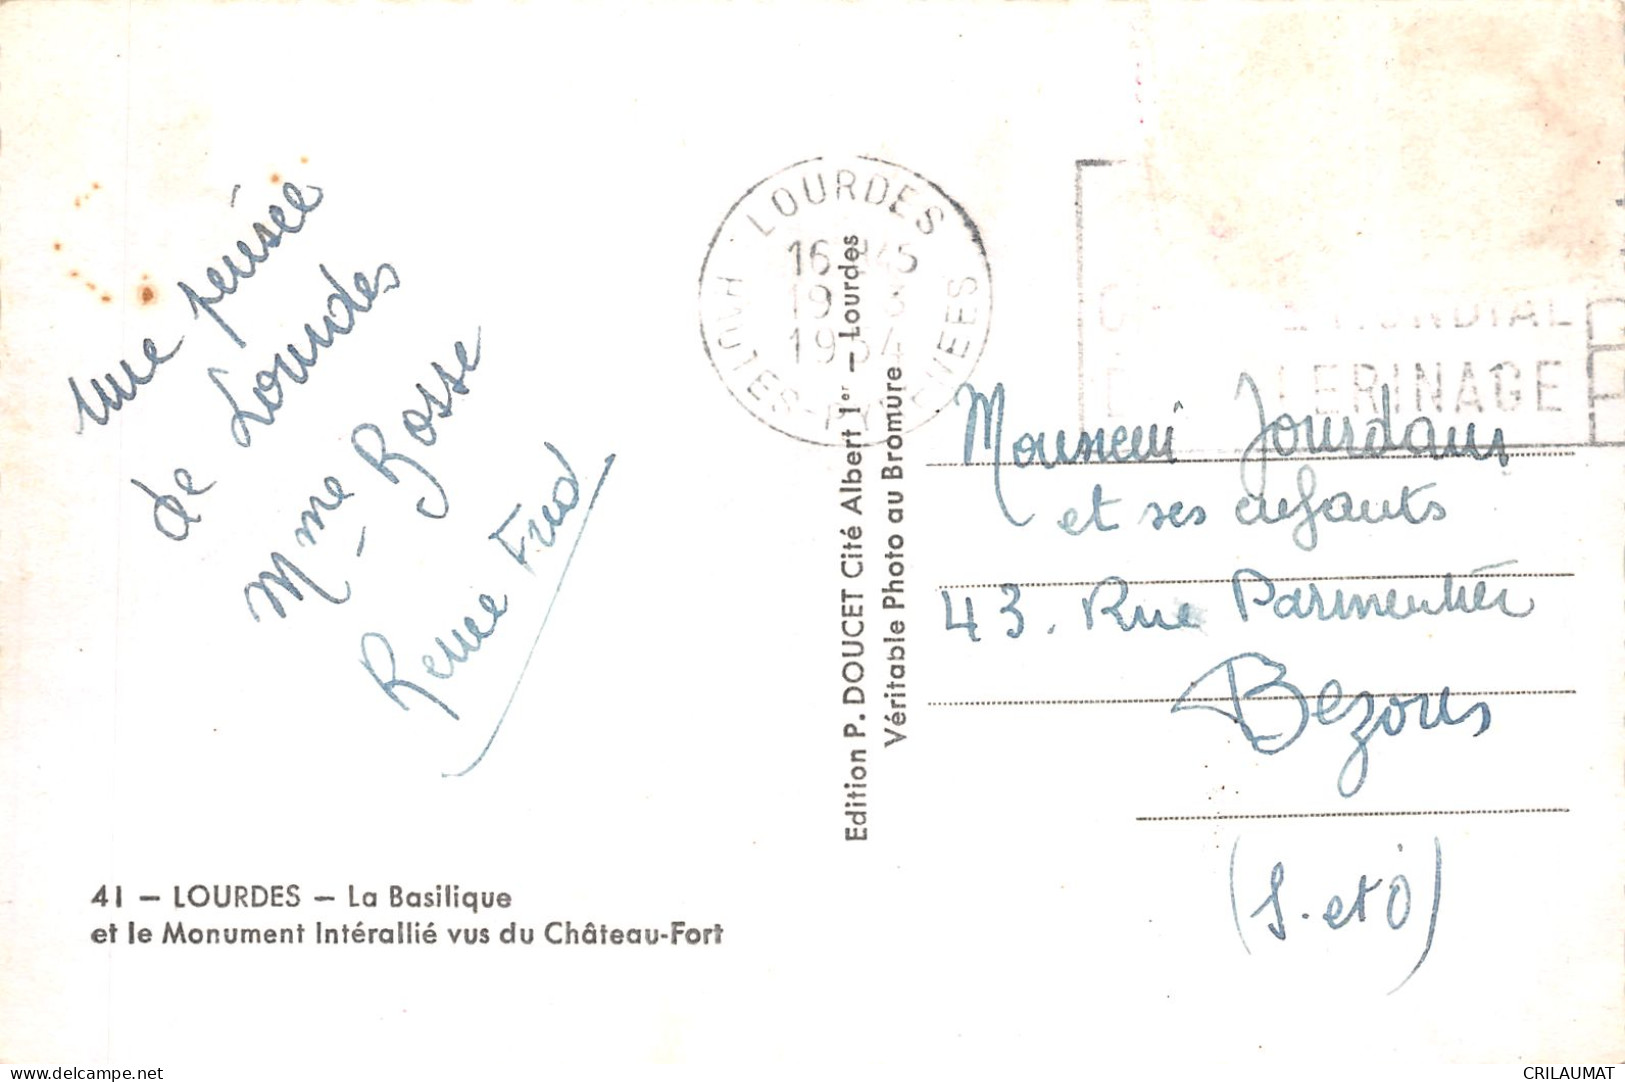 une pensée
de Lourdes
Mme Bosse
Reme Fred
41 — LOURDES — La Basilique
et le Monument Intérallié vus du Château-Fort
Edition P. DOUCET Cité Albert 1er — Lourdes
Véritable Photo au Bromure
LOURDES
16 H45
19
1954
HAUTES-PYRENEES
MONDIAL
LERINAGE
Monsieur Jourdain
et ses enfants
43. Rue Parmentier
Bezons
(S. et O)
delcampe.net
CRILAUMAT